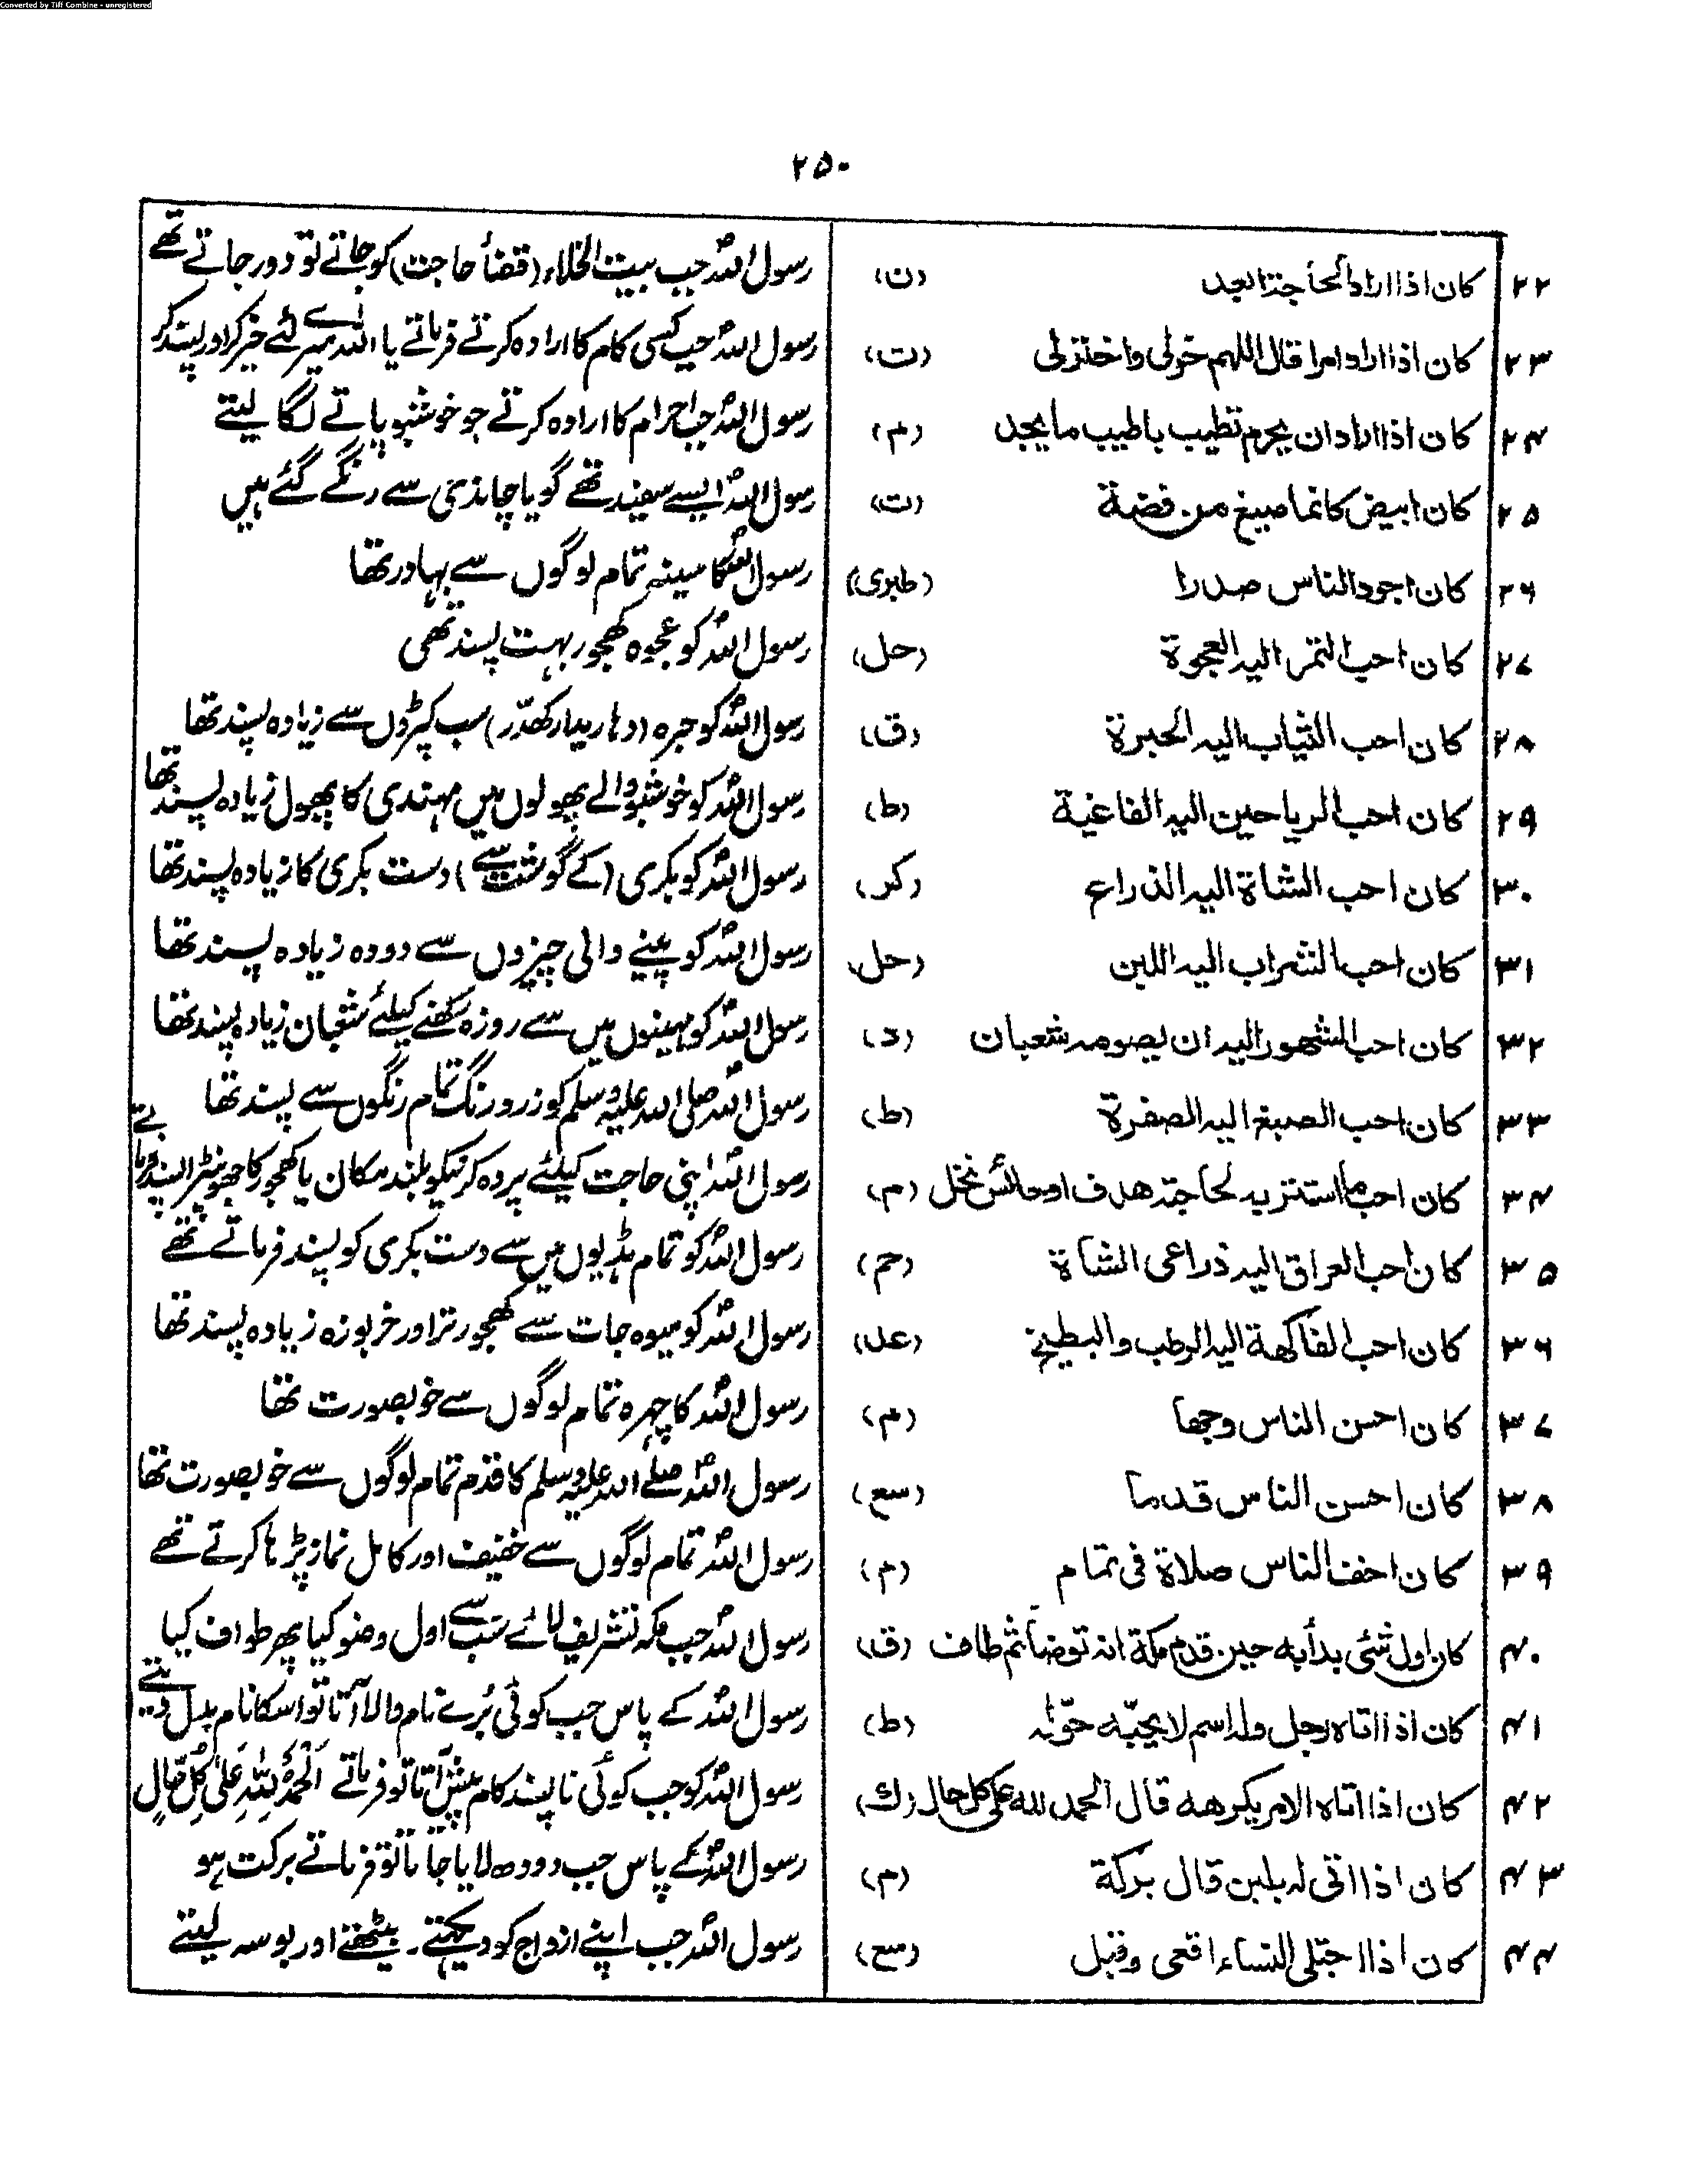 Converted by Tiff Combine - unregistered
۲۵۰
۲۲ کان اذا اراد الحاجۃ ابعد (ن) رسول اللہؐ جب بیت الخلاء (قضأ حاجت) کو جاتے تو دور جاتے تھے
۲۳ کان اذا اراد امرا قال اللہم خرلی واخترلی (ت) رسول اللہؐ جب کسی کام کا ارادہ کرتے فرماتے یا اللہ میرے لئے خیر کر اور پسند کر
۲۴ کان اذا اراد ان یحرم تطیب باطیب ما یجد (م) رسول اللہؐ جب احرام کا ارادہ کرتے جو خوشبو پاتے لگا لیتے
۲۵ کان ابیض کانما صیغ من فضۃ (ت) رسول اللہؐ ایسے سفید تھے گویا چاندی سے رنگے گئے ہیں
۲۶ کان اجود الناس صدرا (طبری) رسول اللہؐ کا سینہ تمام لوگوں سے بہادر تھا
۲۷ کان احب التمر الیہ العجوۃ (حل) رسول اللہؐ کو عجوہ کھجور بہت پسند تھی
۲۸ کان احب الثیاب الیہ الحبرۃ (ق) رسول اللہؐ کو حبرہ (دہاریدار کھدّر) سب کپڑوں سے زیادہ پسند تھا
۲۹ کان احب الریاحین الیہ الفاغیۃ (ط) رسول اللہؐ کو خوشبو والے پھولوں میں مہندی کا پھول زیادہ پسند تھا
۳۰ کان احب الشاۃ الیہ الذراع (کر) رسول اللہؐ کو بکری (کے گوشت سے) دست بکری کا زیادہ پسند تھا
۳۱ کان احب الشراب الیہ اللبن (حل) رسول اللہؐ کو پینے والی چیزوں سے دودہ زیادہ پسند تھا
۳۲ کان احب الشھور الیہ ان یصومہ شعبان (د) رسول اللہؐ کو مہینوں میں سے روزہ رکھنے کیلئے شعبان زیادہ پسند تھا
۳۳ کان احب الصبغ الیہ الصفرۃ (ط) رسول اللہؐ صلی اللہ علیہ وسلم کو زرد رنگ تمام رنگوں سے پسند تھا
۳۴ کان احب ما استتر بہ لحاجتہ ھدف او حائش نخل (م) رسول اللہؐ اپنی حاجت کیلئے پردہ کرنیکو بلند مکان یا کھجور کا جھونپڑا پسند فرماتے
۳۵ کان احب العراق الیہ ذراعی الشاۃ (حم) رسول اللہؐ کو تمام ہڈیوں میں سے دست بکری کو پسند فرماتے تھے
۳۶ کان احب الفاکھۃ الیہ الرطب والبطیخ (عد) رسول اللہؐ کو میوہ جات سے کھجور تر اور خربوزہ زیادہ پسند تھا
۳۷ کان احسن الناس وجھا (م) رسول اللہؐ کا چہرہ تمام لوگوں سے خوبصورت تھا
۳۸ کان احسن الناس قدما (سع) رسول اللہؐ صلے اللہ علیہ وسلم کا قدم تمام لوگوں سے خوبصورت تھا
۳۹ کان اخف الناس صلاۃ فی تمام (م) رسول اللہؐ تمام لوگوں سے خفیف اور کامل نماز پڑہا کرتے تھے
۴۰ کان اول شئی بدأ بہ حین قدم مکۃ انہ توضأ ثم طاف (ق) رسول اللہؐ جب مکہ تشریف لائے سب سے اول وضو کیا پھر طواف کیا
۴۱ کان اذا اتاہ رجل ولہ اسم لا یحبّہ حوّلہ (ط) رسول اللہؐ کے پاس جب کوئی بُرے نام والا آتا تو اسکا نام بدل دیتے
۴۲ کان اذا اتاہ الامر یکرھہ قال الحمد للہ علی کل حال (ک) رسول اللہؐ کو جب کوئی ناپسند کام پیش آتا تو فرماتے اَلْحَمْدُ لِلّٰہِ عَلٰی کُلِّ حَالٍ
۴۳ کان اذا اتی لہ بلبن قال برکۃ (م) رسول اللہؐ کے پاس جب دودھ لایا جاتا تو فرماتے برکت ہو
۴۴ کان اذا اجتلی النساء اقعی وقبل (سع) رسول اللہؐ جب اپنے ازواج کو دیکھتے۔ بیٹھتے اور بوسہ لیتے